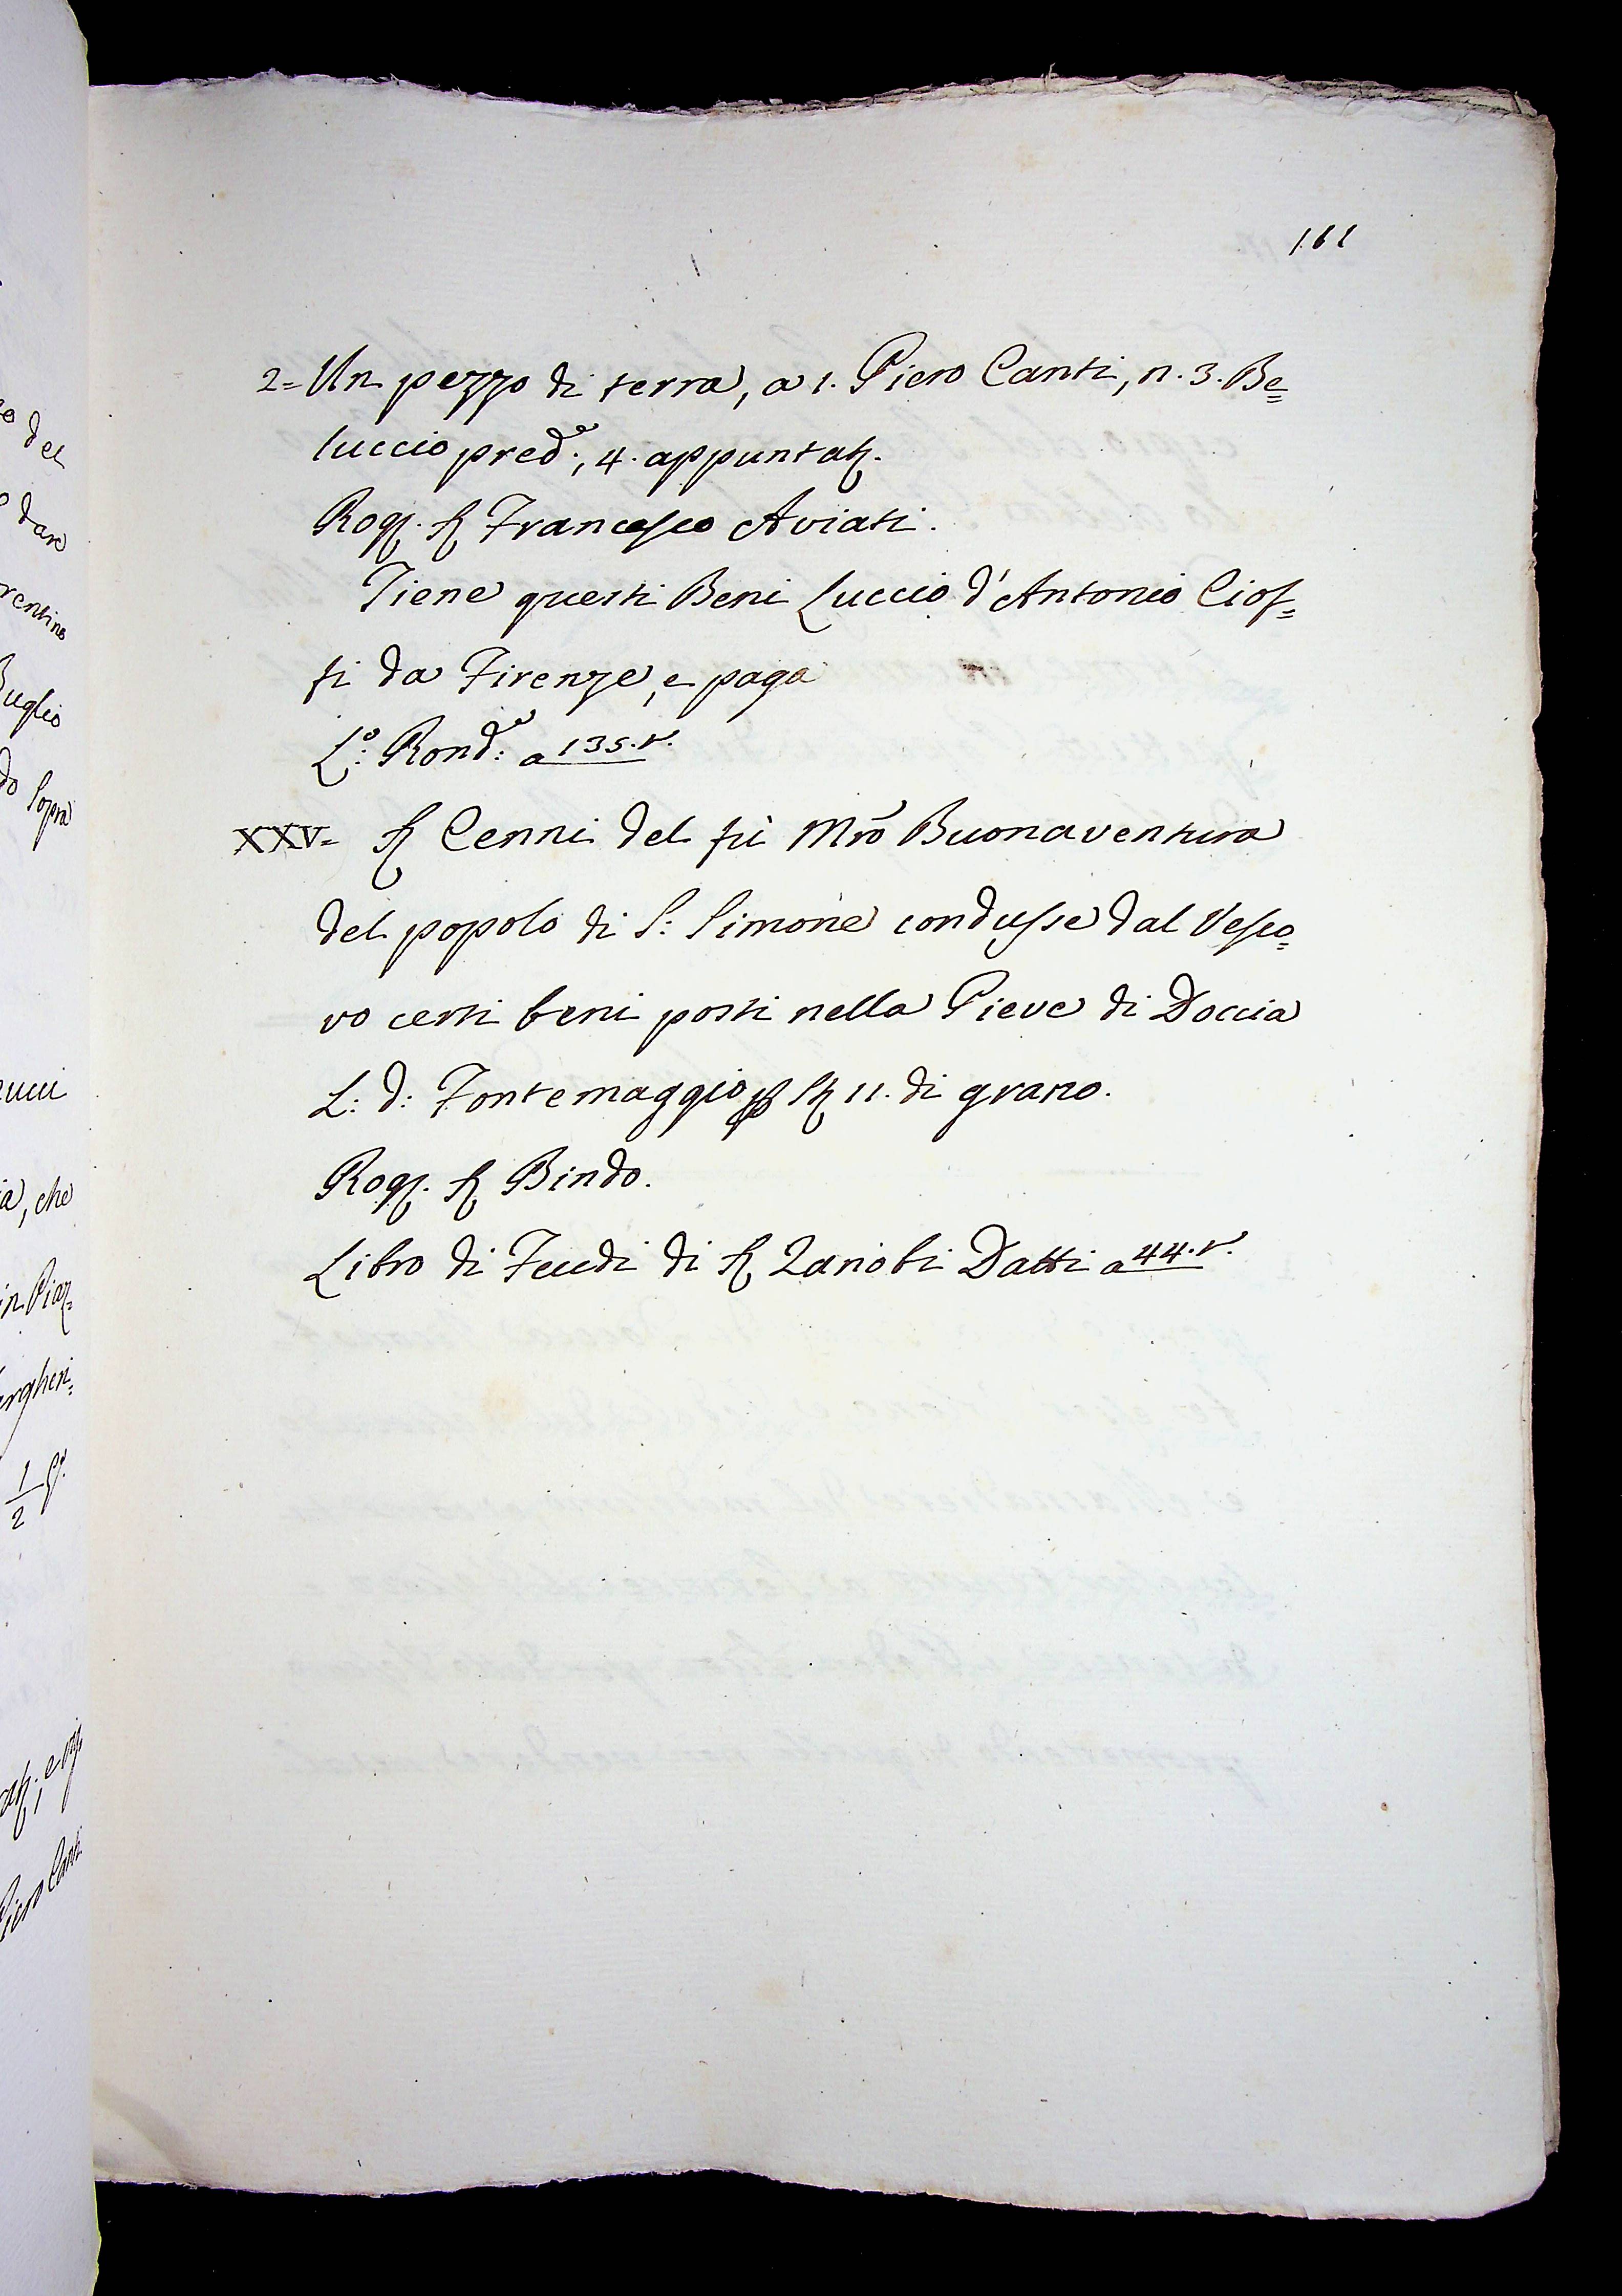 161
2= Un pezzo di terra, a 1. Piero Canti, n. 3. Be=
luccio pred.º, 4. appuntat.
Rog. S. Francesco Aviati.
Tiene questi Beni Luccio d'Antonio Ciof=
fi da Firenze, e paga
L.º Rond.º a 135. v.
XXV= S. Cenni del fù Mrõ Buonaventura
del popolo di S: Simone condusse dal Vesco=
vo certi beni posti nella Pieve di Doccia
L: d: Fontemaggio p St 11. di grano.
Rog. S. Bindo.
Libro di Feudi di S. Zanobi Datti a 44. v.